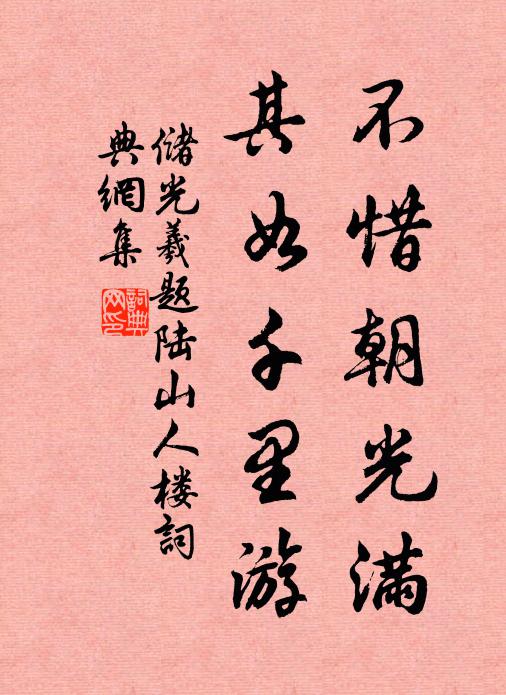 不惜朝光满
其如千里游
储光羲题陆山人楼詞
典網集
詞典网印